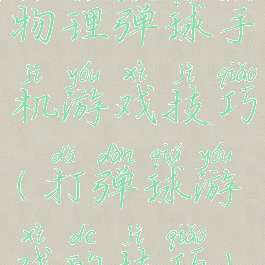 物理弹球手
jī yóu xì jì qiǎo
机游戏技巧
dǎ dàn qiú yóu
(打弹球游
xì de jì qiǎo
戏的技巧)